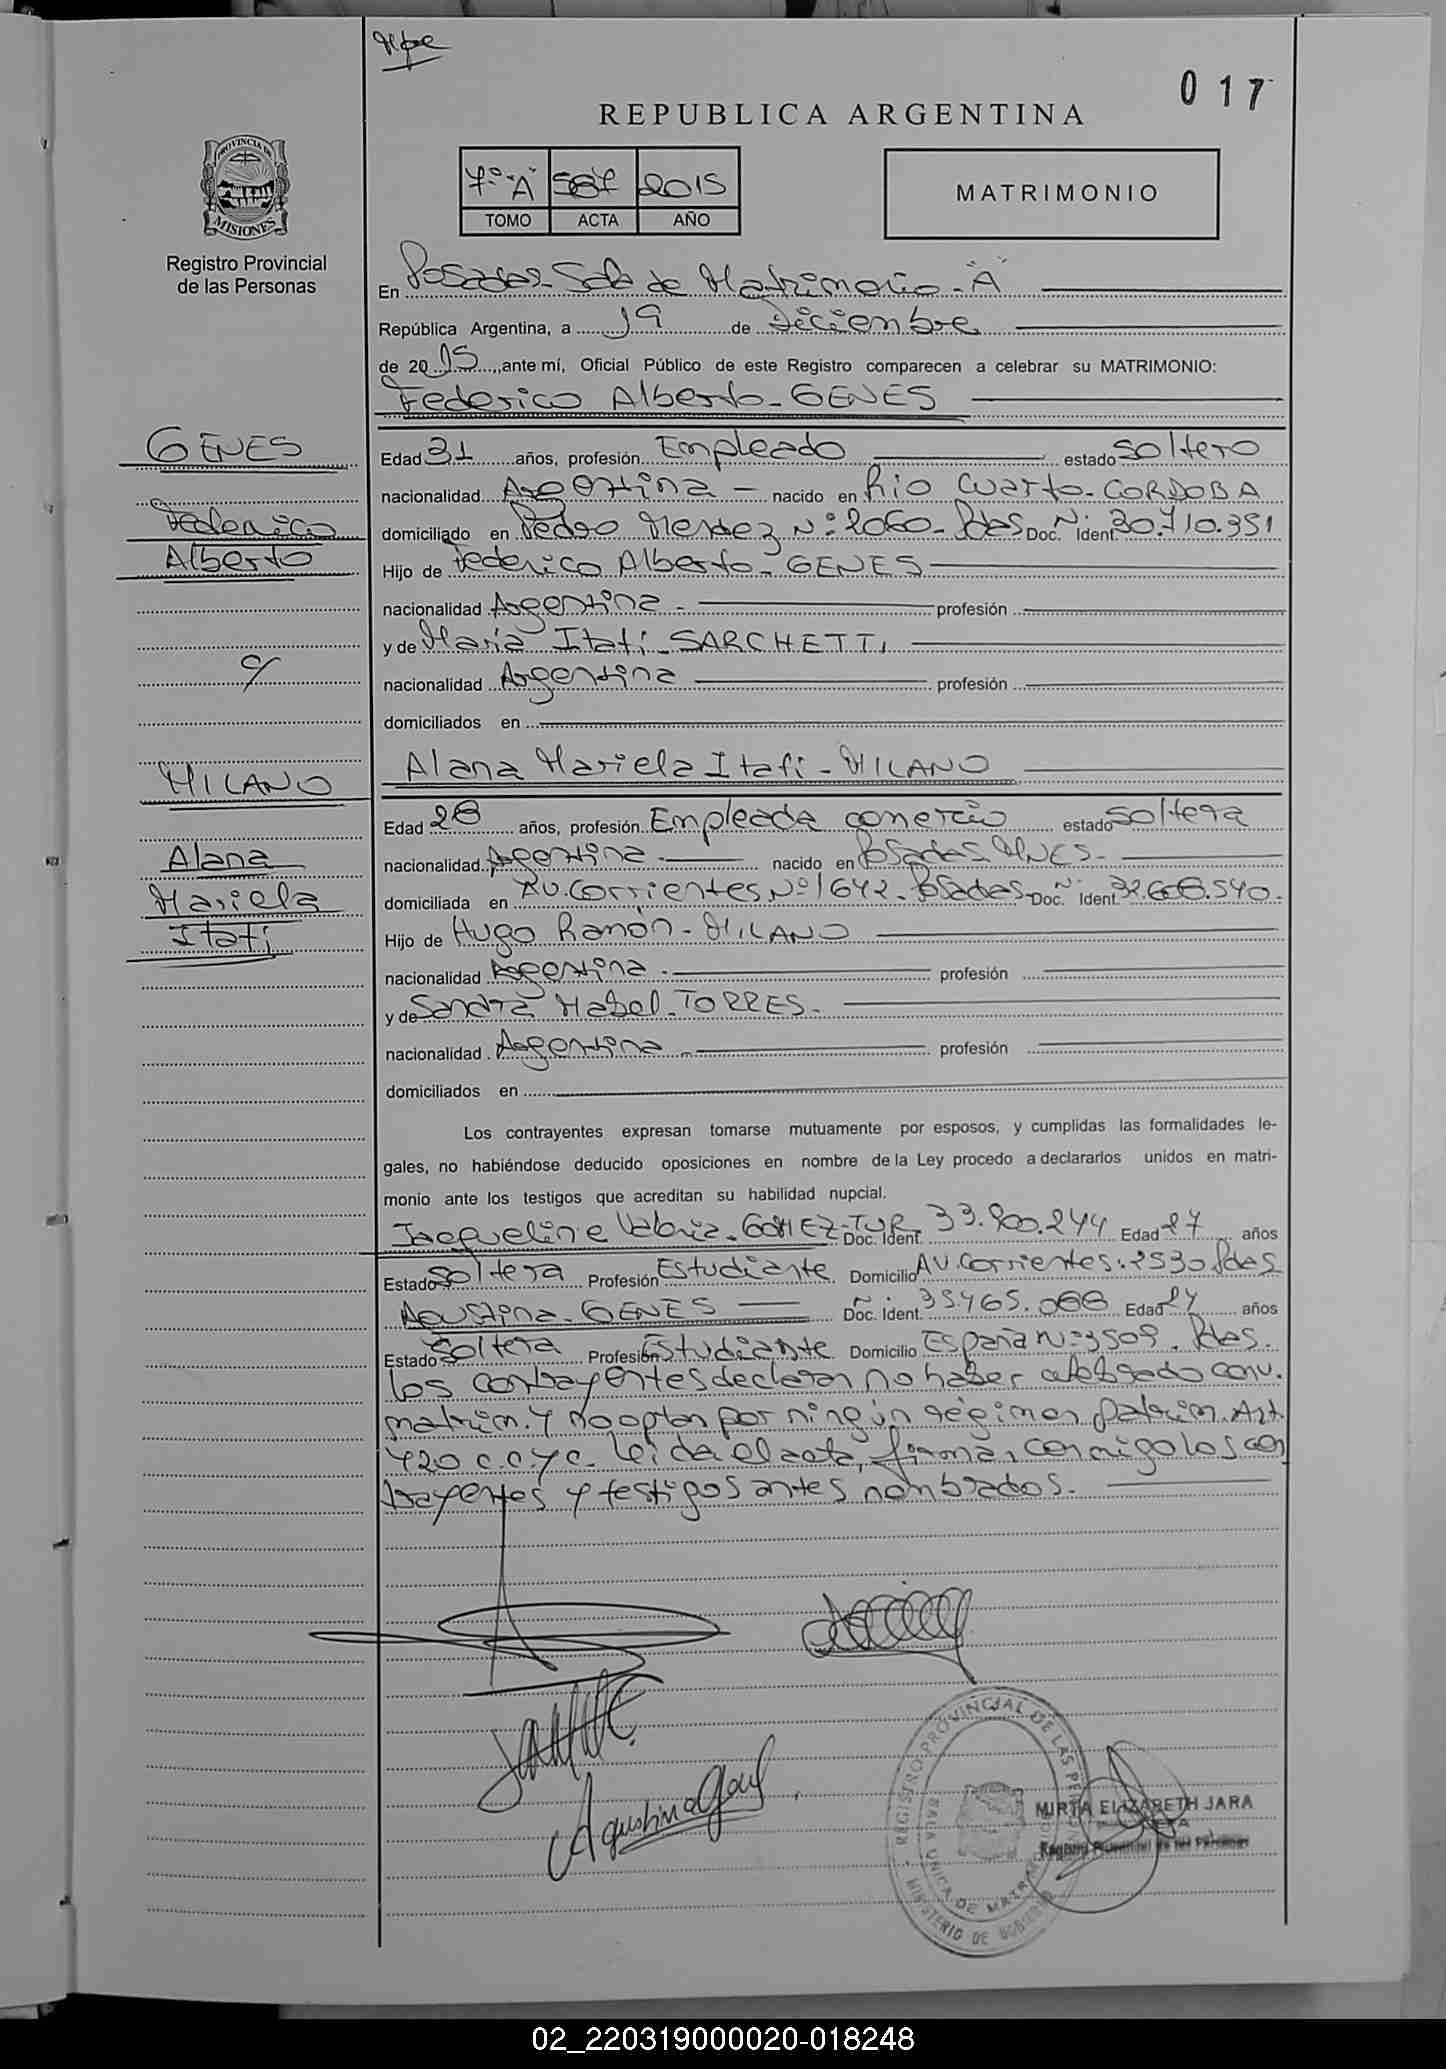 017
REPUBLICA ARGENTINA
7º "A" 587 2015
TOMO ACTA AÑO
MATRIMONIO
PROVINCIA DE MISIONES
Registro Provincial
de las Personas
En Posadas - Sala de Matrimonio - "A"
República Argentina, a 19 de Diciembre
de 2015, ante mí, Oficial Público de este Registro comparecen a celebrar su MATRIMONIO:
Federico Alberto - GENES
GENES
Federico
Alberto
c/
MILANO
Alana
Mariela
Itatí
Edad 31 años, profesión Empleado estado soltero
nacionalidad Argentina - nacido en Río Cuarto - CORDOBA
domiciliado en Pedro Mendez Nº 2060 - Pdas Doc. Ident. 30.710.351
Hijo de Federico Alberto - GENES
nacionalidad Argentina - profesión
y de María Itatí - SARCHETTI
nacionalidad Argentina profesión
domiciliados en
Alana Mariela Itatí - MILANO
Edad 28 años, profesión Empleada comercio estado soltera
nacionalidad Argentina - nacido en Posadas Mnes -
domiciliada en Av. Corrientes Nº 1642 - Posadas Doc. Ident. 32.608.540 -
Hijo de Hugo Ramón - MILANO
nacionalidad Argentina - profesión
y de Sandra Mabel - TORRES -
nacionalidad Argentina - profesión
domiciliados en
Los contrayentes expresan tomarse mutuamente por esposos, y cumplidas las formalidades le-
gales, no habiéndose deducido oposiciones en nombre de la Ley procedo a declararlos unidos en matri-
monio ante los testigos que acreditan su habilidad nupcial.
Jaqueline Valeria - GOMEZ - TUR Doc. Ident. 33.900.244 Edad 27 años
Estado soltera Profesión Estudiante Domicilio Av. Corrientes - 2530 Pdas
Agustina - GENES Doc. Ident. 35.465.088 Edad 24 años
Estado soltera Profesión Estudiante Domicilio España Nº 3509. Pdas.
Los contrayentes declaran no haber celebrado conv.
matrim. y no optan por ningún régimen patrim. Art.
420 c.c. y c. Leída el acta, firman conmigo los con
trayentes y testigos antes nombrados.
Agustina
REGISTRO PROVINCIAL DE LAS PERSONAS
SALA UNICA DE MATRIMONIO
MINISTERIO DE GOBIERNO
MIRTA ELIZABETH JARA
Registro Provincial de las Personas
02_220319000020-018248